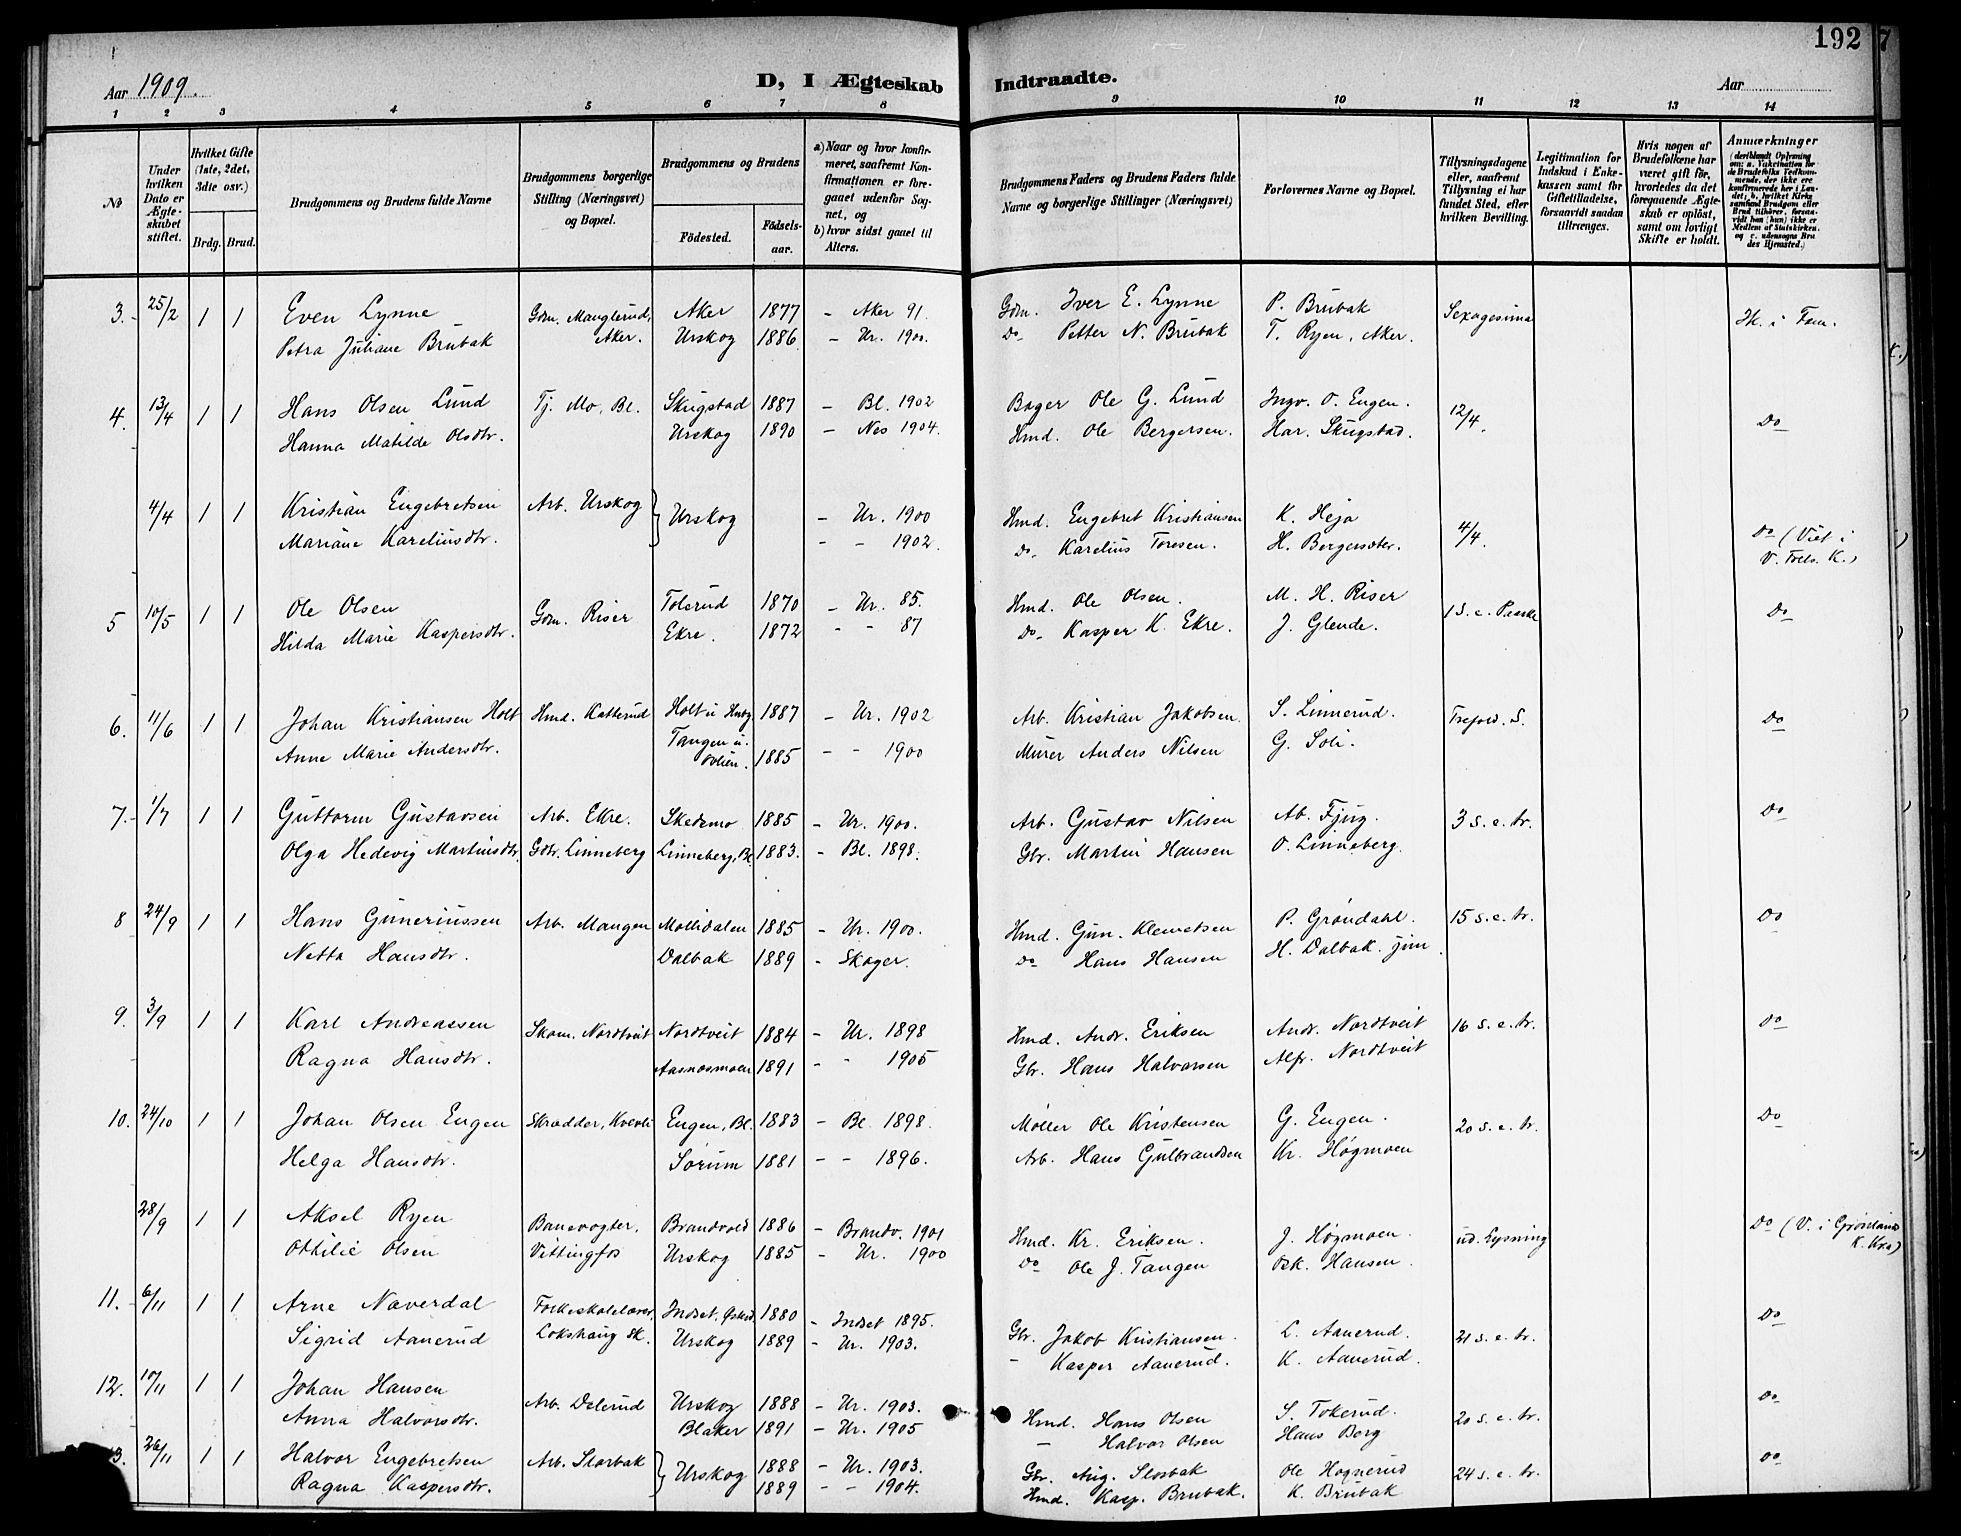 192
7
Aar 1909.
D, I Ægteskab Indtraadte.
Aar
1 2 3 4 5 6 7 8 9 10 11 12 13 14
No
Under hvilken Dato er Ægteskabet stiftet.
Hvilket Gifte (1ste, 2det, 3dte osv.)
Brdg. Brud.
Brudgommens og Brudens fulde Navne
Brudgommens borgerlige Stilling (Næringsvei) og Bopæl.
Brudgommens og Brudens
Födested. Födsels-aar.
a) Naar og hvor konfirmeret, saafremt Konfirmationen er foregaaet udenfor Sognet, og
b) hvor sidst gaaet til Alters.
Brudgommens Faders og Brudens Faders fulde Navne og borgerlige Stillinger (Næringsvei)
Forlovernes Navne og Bopæl.
Tillysningsdagene eller, saafremt Tillysning ei har fundet Sted, efter hvilken Bevilling.
Legitimation for Indskud i Enkekassen samt for Giftetilladelse, forsaavidt saadan tiltrænges.
Hvis nogen af Brudefolkene har været gift för, hvorledes da det foregaaende Ægteskab er oplöst, samt om lovligt Skifte er holdt.
Anmærkninger
(deriblandt Oplysning om: a. Vakcination for de Brudefolks Vedkommende, der ikke ere konfirmerede her i Landet; b. hvilket Kirkesamfund Brudgom eller Brud tilhörer, forsaavidt han (hun) ikke er Medlem af Statskirken, og c. udensogns Brudes Hjemsted.)
3. 25/2 1 1 Even Lynne Gdm. Manglerud, Aker 1877 - Aker 91. Gdm. Iver E. Lynne P. Brubak Sexagesima Hk. i Fam.
Petra Juliane Brubak Aker. Urskog 1886 - Ur. 1900. Do Petter N. Brubak T. Ryen, Aker.
4. 13/4 1 1 Hans Olsen Lund Tj. Mo, Bl. Skugstad 1887 - Bl. 1902 Bager Ole G. Lund Ingv. O. Engen. 12/4. Do
Hanna Matilde Olsdtr. Urskog 1890 - Nes 1904. Hmd. Ole Bergersen. Har. Skugstad.
4/4 1 1 Kristian Engebretsen Arb. Urskog } Urskog - Ur. 1900 Hmd. Engebret Kristiansen K. Heja 4/4. Do (Viet i
Mariane Kareliusdtr. - - 1902. Do. Karelius Toresen. H. Bergersæter. V. Frels. K.)
5 10/5 1 1 Ole Olsen Gdm. Riser Tolerud 1870 - Ur. 85. Hmd. Ole Olsen. M. H. Riser 1 S. e. Paaske Do
Hilda Marie Kaspersdtr. Ekre. 1872 - - 87 Do- Kasper K. Ekre. J. Glende.
6. 11/6 1 1 Johan Kristiansen Holt Hmd. Katterud Holt u. 1887 - Ur. 1902 Arb. Kristian Jakobsen. S. Linnerud. Trefold. S. Do
Anne Marie Andersdtr. Tangen u. 1885 - - 1900 Murer Anders Nilsen G. Soli.
7. 1/7 1 1 Guttorm Gustavsen Arb. Ekre. Skedsmo 1885 - Ur. 1900. Arb. Gustav Nilsen Ab. Fjug. 3 S. e. tr. Do
Olga Hedevig Martinsdtr. Gdtr. Linneberg Linneberg, Bl. 1883. - Bl. 1898. Gbr. Martin Hansen O. Linneberg.
8 24/9 1 1 Hans Guneriussen Arb. Mangen Mollidalen 1885 - Ur. 1900. Hmd. Gun. Klemetsen P. Gröndahl. 15 S. e. tr. Do
Netta Hansdtr. Dalbak 1889 - Skoger. Do Hans Hansen H. Dalbak jun.
9. 3/9 1 1 Karl Andreassen Skom. Nordtveit Nordtveit 1884 - Ur. 1898 Hmd. Andr. Eriksen Andr. Nordtveit 16 S. e. tr. Do
Ragna Hansdtr. Aasnesmoen 1891 - - 1905 Gbr. Hans Halvorsen Alfr. Nordtveit
10. 24/10 1 1 Johan Olsen Engen Skrædder, Kverli Engen, Bl. 1883 - Bl. 1898. Möller Ole Kristensen G. Engen. 20 S. e. tr. Do
Helga Hansdtr. Sörum 1881 - - 1896. Arb. Hans Gulbrandsen Kr. Høgmoen
28/9 1 1 Aksel Ryen Banevogter, Brandvold 1886 - Brandv. 1901 Hmd. Kr. Eriksen. J. Høgmoen. ud. Lysning Do (V. i Grönland
Othilie Olsen Vittingfos Urskog 1885 - Ur. 1900 Do Ole J. Tangen Osk. Hansen. K. Kra)
11. 6/11 1 1 Arne Næverdal Folkeskolelærer, Indset, 1880 - Indset 1895. Gbr. Jakob Kristiansen. L. Aanerud. 21 S. e. tr. Do
Sigrid Aanerud Lokshaug Sk. Urskog 1889 - Ur. 1903. - Kasper Aanerud. K. Aanerud.
12. 10/11 1 1 Johan Hansen Arb. Dælerud Urskog 1888 - Ur. 1903. Hmd. Hans Olsen S. Tokerud. 20 S. e. tr. Do
Anna Halvorsdtr. Blaker 1891 - Ur. 1905 - Halvor Olsen Hans Berg
13. 26/11 1 1 Halvor Engebretsen Arb. Storbak } Urskog 1888 - Ur. 1903. Gbr. Aug. Storbak Ole Hognerud 24 S. e. tr. Do
Ragna Kaspersdtr. 1889 - - 1904. Hmd. Kasp. Brubak. K. Brubak